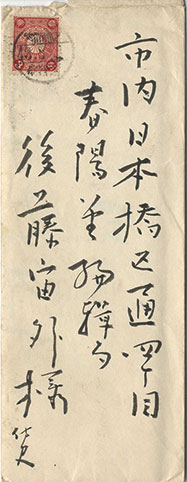 市内日本橋区通四丁目
春陽堂編輯局
後藤宙外様